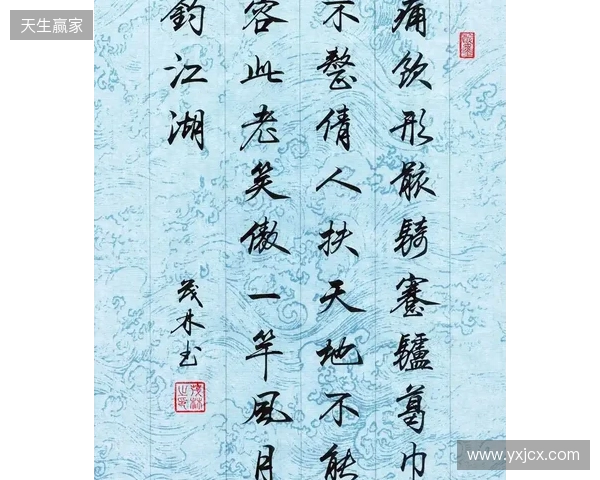 天生赢家
痛飲形骸騎蹇驢葛巾
不整倩人扶天地不能
容此老笑傲一竿風月
釣江湖
茂林书
www.yxjcx.com